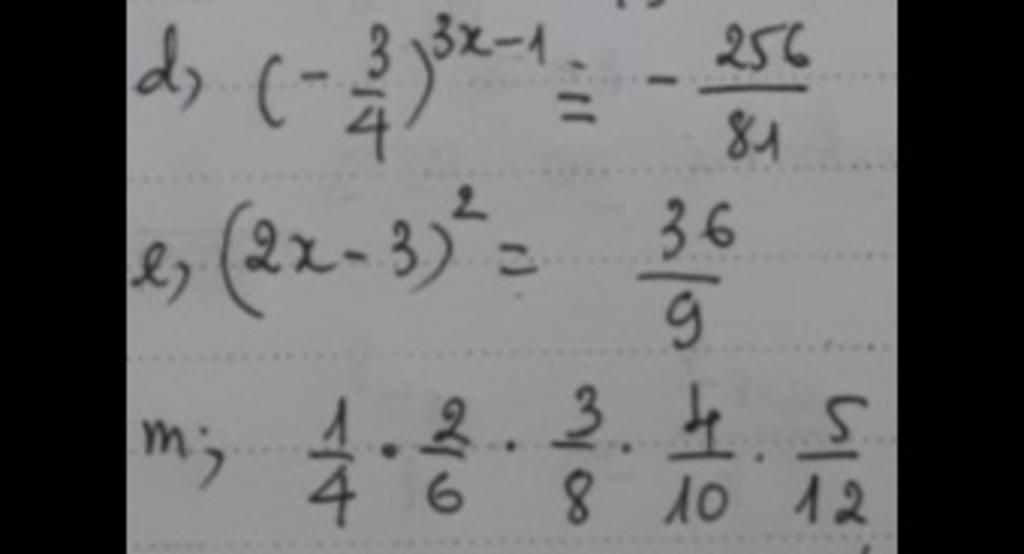 d, (-3/4)^(3x-1) = -256/81
e, (2x-3)^2 = 36/9
m; 1/4 · 2/6 · 3/8 · 4/10 · 5/12